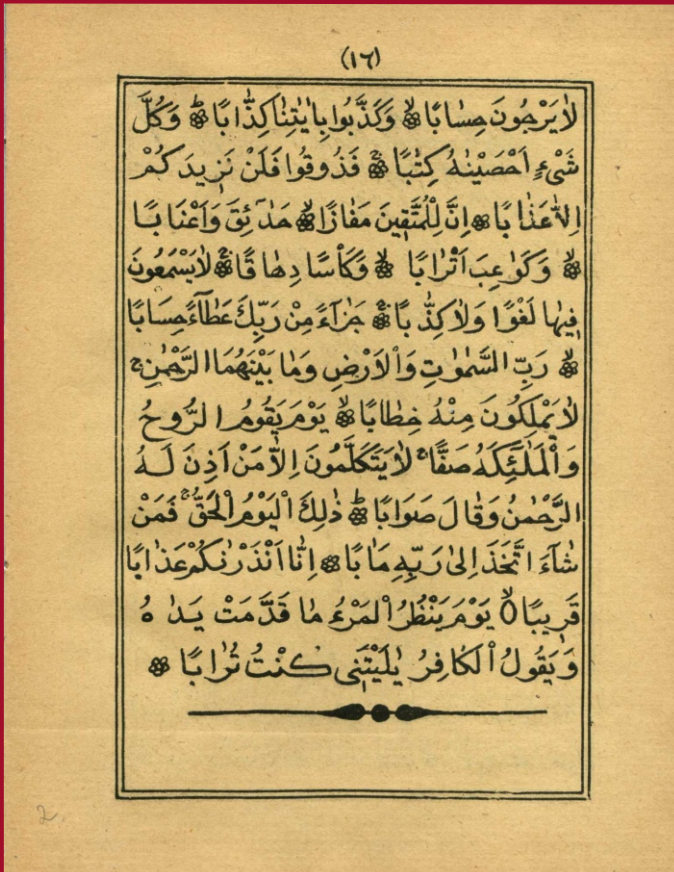 (١٦)
لَا يَرْجُونَ حِسَابًا ۞ وَكَذَّبُوا بِاٰيٰتِنَا كِذَّابًا ۞ وَكُلَّ
شَیْءٍ اَحْصَيْنٰهُ كِتٰبًا ۞ فَذُوقُوا فَلَنْ نَزِيدَكُمْ
اِلَّا عَذَابًا ۞ اِنَّ لِلْمُتَّقِينَ مَفَازًا ۞ حَدَٓئِقَ وَاَعْنَابًا
۞ وَكَوَاعِبَ اَتْرَابًا ۞ وَكَأْسًا دِهَاقًا ۞ لَا يَسْمَعُونَ
فِيهَا لَغْوًا وَلَا كِذّٰبًا ۞ جَزَآءً مِنْ رَبِّكَ عَطَآءً حِسَابًا
۞ رَبِّ السَّمٰوٰتِ وَالْاَرْضِ وَمَا بَيْنَهُمَا الرَّحْمٰنِ ج
لَا يَمْلِكُونَ مِنْهُ خِطَابًا ۞ يَوْمَ يَقُومُ الرُّوحُ
وَالْمَلٰٓئِكَهُ صَفًّا لَا يَتَكَلَّمُونَ اِلَّا مَنْ اَذِنَ لَهُ
الرَّحْمٰنُ وَقَالَ صَوَابًا ۞ ذٰلِكَ الْيَوْمُ الْحَقُّ ج فَمَنْ
شَآءَ اتَّخَذَ اِلٰى رَبِّهِ مَابًا ۞ اِنَّا اَنْذَرْنٰكُمْ عَذَابًا
قَرِيبًا ۝ يَوْمَ يَنْظُرُ الْمَرْءُ مَا قَدَّمَتْ يَدَاهُ
وَيَقُولُ الْكَافِرُ يٰلَيْتَنِى كُنْتُ تُرَابًا ۞
2.